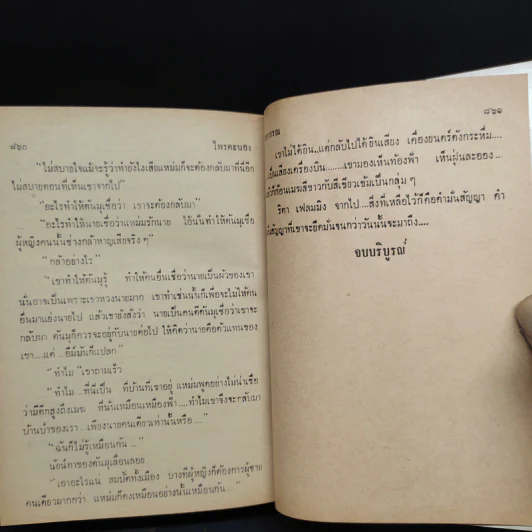 ๘๖๐ ไพรคะนอง
"ไม่สบายใจแม้จะรู้ว่าทำยังไงเสียแหม่มก็จะต้องกลับมาที่นี่อีก
ไม่สบายตอนที่เห็นเขาจากไป"
"อะไรทำให้คันมุเชื่อว่า เขาจะต้องกลับมา"
"อะไรทำให้นายเชื่อว่าแหม่มรักนาย ไอ้นั่นทำให้คันมุเชื่อ
ผู้หญิงคนนั้นช่างกล้าหาญเสียจริง ๆ"
"กล้าอย่างไร"
"เขาทำให้คันมุรู้ ทำให้คนอื่นเชื่อว่านายเป็นผัวของเขา
นั่นอาจเป็นเพราะเขาหวงนายมาก เขาทำเช่นนั้นก็เพื่อจะไม่ให้คน
อื่นมาแย่งนายไป แล้วเขายังสั่งว่า นายเป็นคนดีคันมุเชื่อว่าเขาจะ
กลับมา คันมุก็ควรจะอยู่กับนายต่อไป ให้คิดว่านายคือตัวแทนของ
เขา....แต่ ..อืมม์มันก็แปลก"
"ทำไม" เขาถามเร็ว
"ทำไม ...ที่นี่เป็น ที่บ้านที่เขาอยู่ แหม่มพูดอย่างไม่น่าเชื่อ
ว่ามีตึกสูงถึงเมฆ ที่นั่นเหมือนเหมืองฟ้า....ทำไมเขาจึงจะกลับมา
บ้านป่าของเรา ...เพียงนายคนเดียวเท่านั้นหรือ..."
"ฉันก็ไม่รู้เหมือนกัน ..."
นัยน์ตาของคันมุเลื่อนลอย
"เอาอะไรแน่ สมบัติทั้งเมือง บางทีผู้หญิงก็ต้องการผู้ชาย
คนเดียวมากกว่า แหม่มก็คงเหมือนอย่างนั้นเหมือนกัน..."
๘๖๑
เขาไม่ได้ยิน..แต่กลับไปได้ยินเสียง เครื่องยนตร์ดังกระหึ่ม....
เป็นเสียงเครื่องบิน......เขามองเห็นท้องฟ้า เห็นฝุ่นละออง...
ก้อนเมฆสีขาวกับสีเขียวเข้มเป็นกลุ่ม ๆ
ริตา เฟลมมิง จากไป....สิ่งที่เหลือไว้ก็คือคำมั่นสัญญา คำ
สัญญาที่เขาจะยึดมั่นจนกว่าวันนั้นจะมาถึง....
จบบริบูรณ์